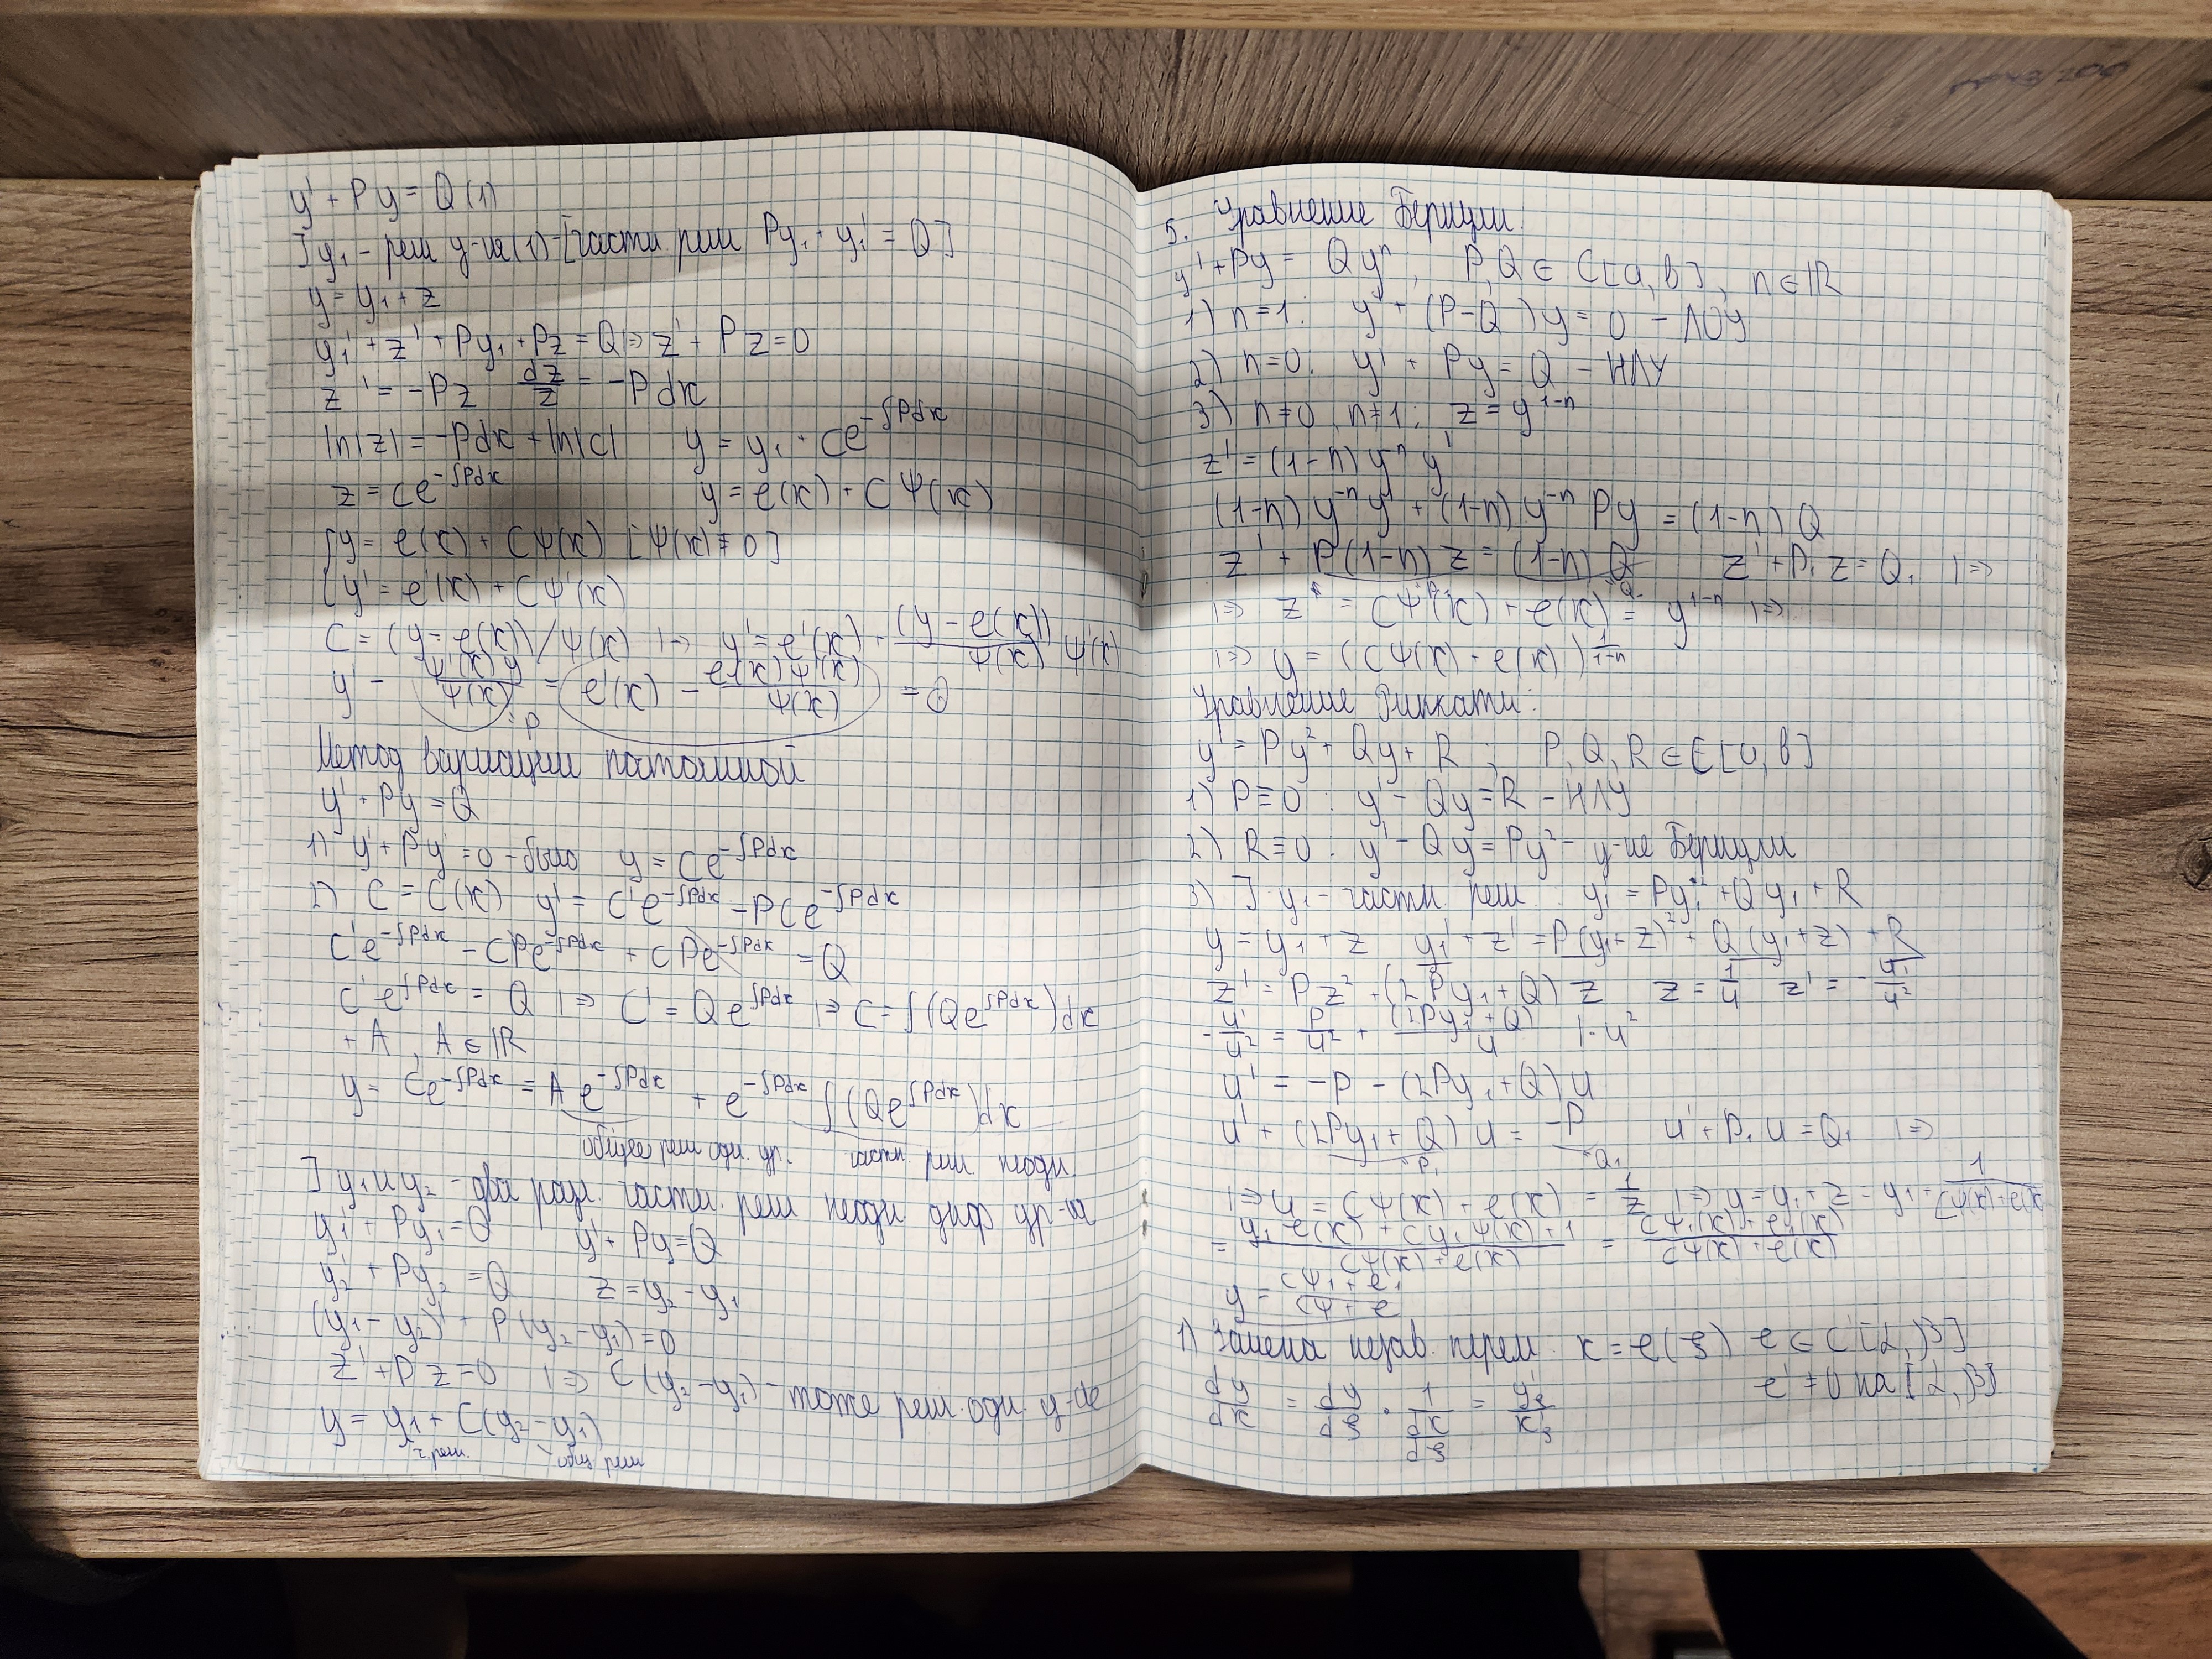 y' + Py = Q (1)
] y₁ - реш у-ия (1) - [частн. реш Py₁ + y₁' = Q]
y = y₁ + z
y₁' + z' + Py₁ + Pz = Q |⇒ z' + Pz = 0
z' = -Pz   dz/z = -Pdx
ln|z| = -Pdx + ln|C|   y = y₁ + Ce^(-∫Pdx)
z = Ce^(-∫Pdx)   y = φ(x) + Cψ(x)
{ y = φ(x) + Cψ(x) [ψ(x) ≠ 0]
{ y' = φ'(x) + Cψ'(x)
C = (y - φ(x))/ψ(x) |⇒ y' = φ'(x) + (y - φ(x))/ψ(x) ψ'(x)
y' - ψ'(x)y/ψ(x) = φ'(x) - φ(x)ψ'(x)/ψ(x) = Q
:P
Метод вариации постоянной
y' + Py = Q
1) y' + Py = 0 - было   y = Ce^(-∫Pdx)
2) C = C(x)   y' = C'e^(-∫Pdx) - PCe^(-∫Pdx)
C'e^(-∫Pdx) - CPe^(-∫Pdx) + CPe^(-∫Pdx) = Q
C'e^(∫Pdx) = Q |⇒ C' = Qe^(∫Pdx) |⇒ C = ∫(Qe^(∫Pdx))dx
+ A, A ∈ ℝ
y = Ce^(-∫Pdx) = Ae^(-∫Pdx) + e^(-∫Pdx) ∫(Qe^(∫Pdx))dx
общее реш одн. ур.   частн. реш. неодн.
] y₁ и y₂ - два разл. частн. реш неодн диф ур-ия
y₁' + Py₁ = Q   y' + Py = Q
y₂' + Py₂ = Q   z = y₂ - y₁
(y₁ - y₂)' + P(y₂ - y₁) = 0
z' + Pz = 0 |⇒ C(y₂ - y₁) - тоже реш. одн.
y = y₁ + C(y₂ - y₁)
ч. реш.   общ реш
5. Уравнение Бернулли.
y' + Py = Qyⁿ, P, Q ∈ C[a, b], n ∈ ℝ
1) n = 1: y' + (P-Q)y = 0 - ЛОУ
2) n = 0: y' + Py = Q - НЛУ
3) n ≠ 0, n ≠ 1: z = y^(1-n)
z' = (1-n)yⁿ y'
(1-n)y⁻ⁿy' + (1-n)y⁻ⁿPy = (1-n)Q
z' + P(1-n)z = (1-n)Q   z' + P₁z = Q₁ |⇒
|⇒ z = Cψ(x) + φ(x) = y^(1-n) |⇒
|⇒ y = (Cψ(x) + φ(x))^(1/(1-n))
Уравнение Риккати:
y' = Py² + Qy + R; P, Q, R ∈ C[a, b]
1) P ≡ 0: y' - Qy = R - НЛУ
2) R ≡ 0: y' - Qy = Py² - у-ие Бернулли
3) ] y₁ - частн. реш. : y₁' = Py₁² + Qy₁ + R
y = y₁ + z   y₁' + z' = P(y₁ + z)² + Q(y₁ + z) + R
z' = Pz² + (2Py₁ + Q)z   z = 1/u   z' = - u'/u²
-u'/u² = P/u² + (2Py₁ + Q)/u   |·u²
u' = -P - (2Py₁ + Q)u
u' + (2Py₁ + Q)u = -P   u' + P₁u = Q₁ |⇒
:P₁   :Q₁
|⇒ u = Cψ(x) + φ(x) = 1/z |⇒ y = y₁ + z = y₁ + 1/(Cψ(x) + φ(x)
= (y₁φ(x) + Cy₁ψ(x) + 1)/(Cψ(x) + φ(x)) = (Cψ₁(x) + φ₁(x))/(Cψ(x) + φ(x))
y = (Cψ₁ + φ₁)/(Cψ + φ)
1) Замена незав. перем. x = φ(ξ) φ ∈ C'[α, β]
φ' ≠ 0 на [α, β]
dy/dx = dy/dξ · 1/(dx/dξ) = y'ξ/x'ξ